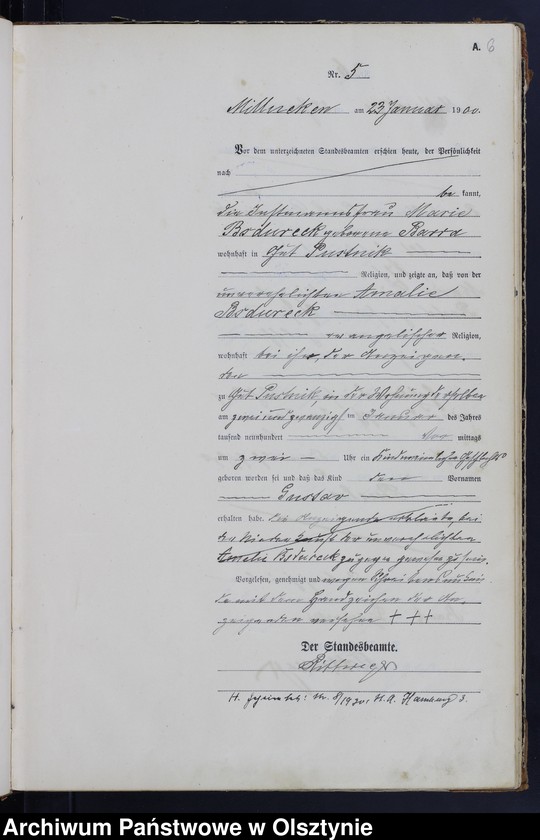 A. 6
Nr. 5
Millucken am 23 Januar 1900.
Vor dem unterzeichneten Standesbeamten erschien heute, der Persönlichkeit
nach
be kannt,
die Instmannsfrau Marie
Bsdureck geborene Barra
wohnhaft in Gut Pustnik
Religion, und zeigte an, daß von der
unverehelichten Amalie
Bsdureck
evangelischer Religion,
wohnhaft bei ihr, der Anzeigen-
den
zu Gut Pustnik, in der Wohnung derselben
am zwei und zwanzigsten Januar des Jahres
tausend neunhundert Vor mittags
um zwei Uhr ein Kind männlichen Geschlechts
geboren worden sei und daß das Kind den Vornamen
Gustav
erhalten habe. Die Anzeigende erklärte, bei
der Niederkunft der unverehelichten
Amalie Bsdureck zugegen gewesen zu sein.
Vorgelesen, genehmigt und wegen Schreibensunkun-
de mit dem Handzeichen der An-
zeigenden versehen † † †
Der Standesbeamte.
H. Nr. 8/1930, St. A. Hamburg 3.
Archiwum Państwowe w Olsztynie